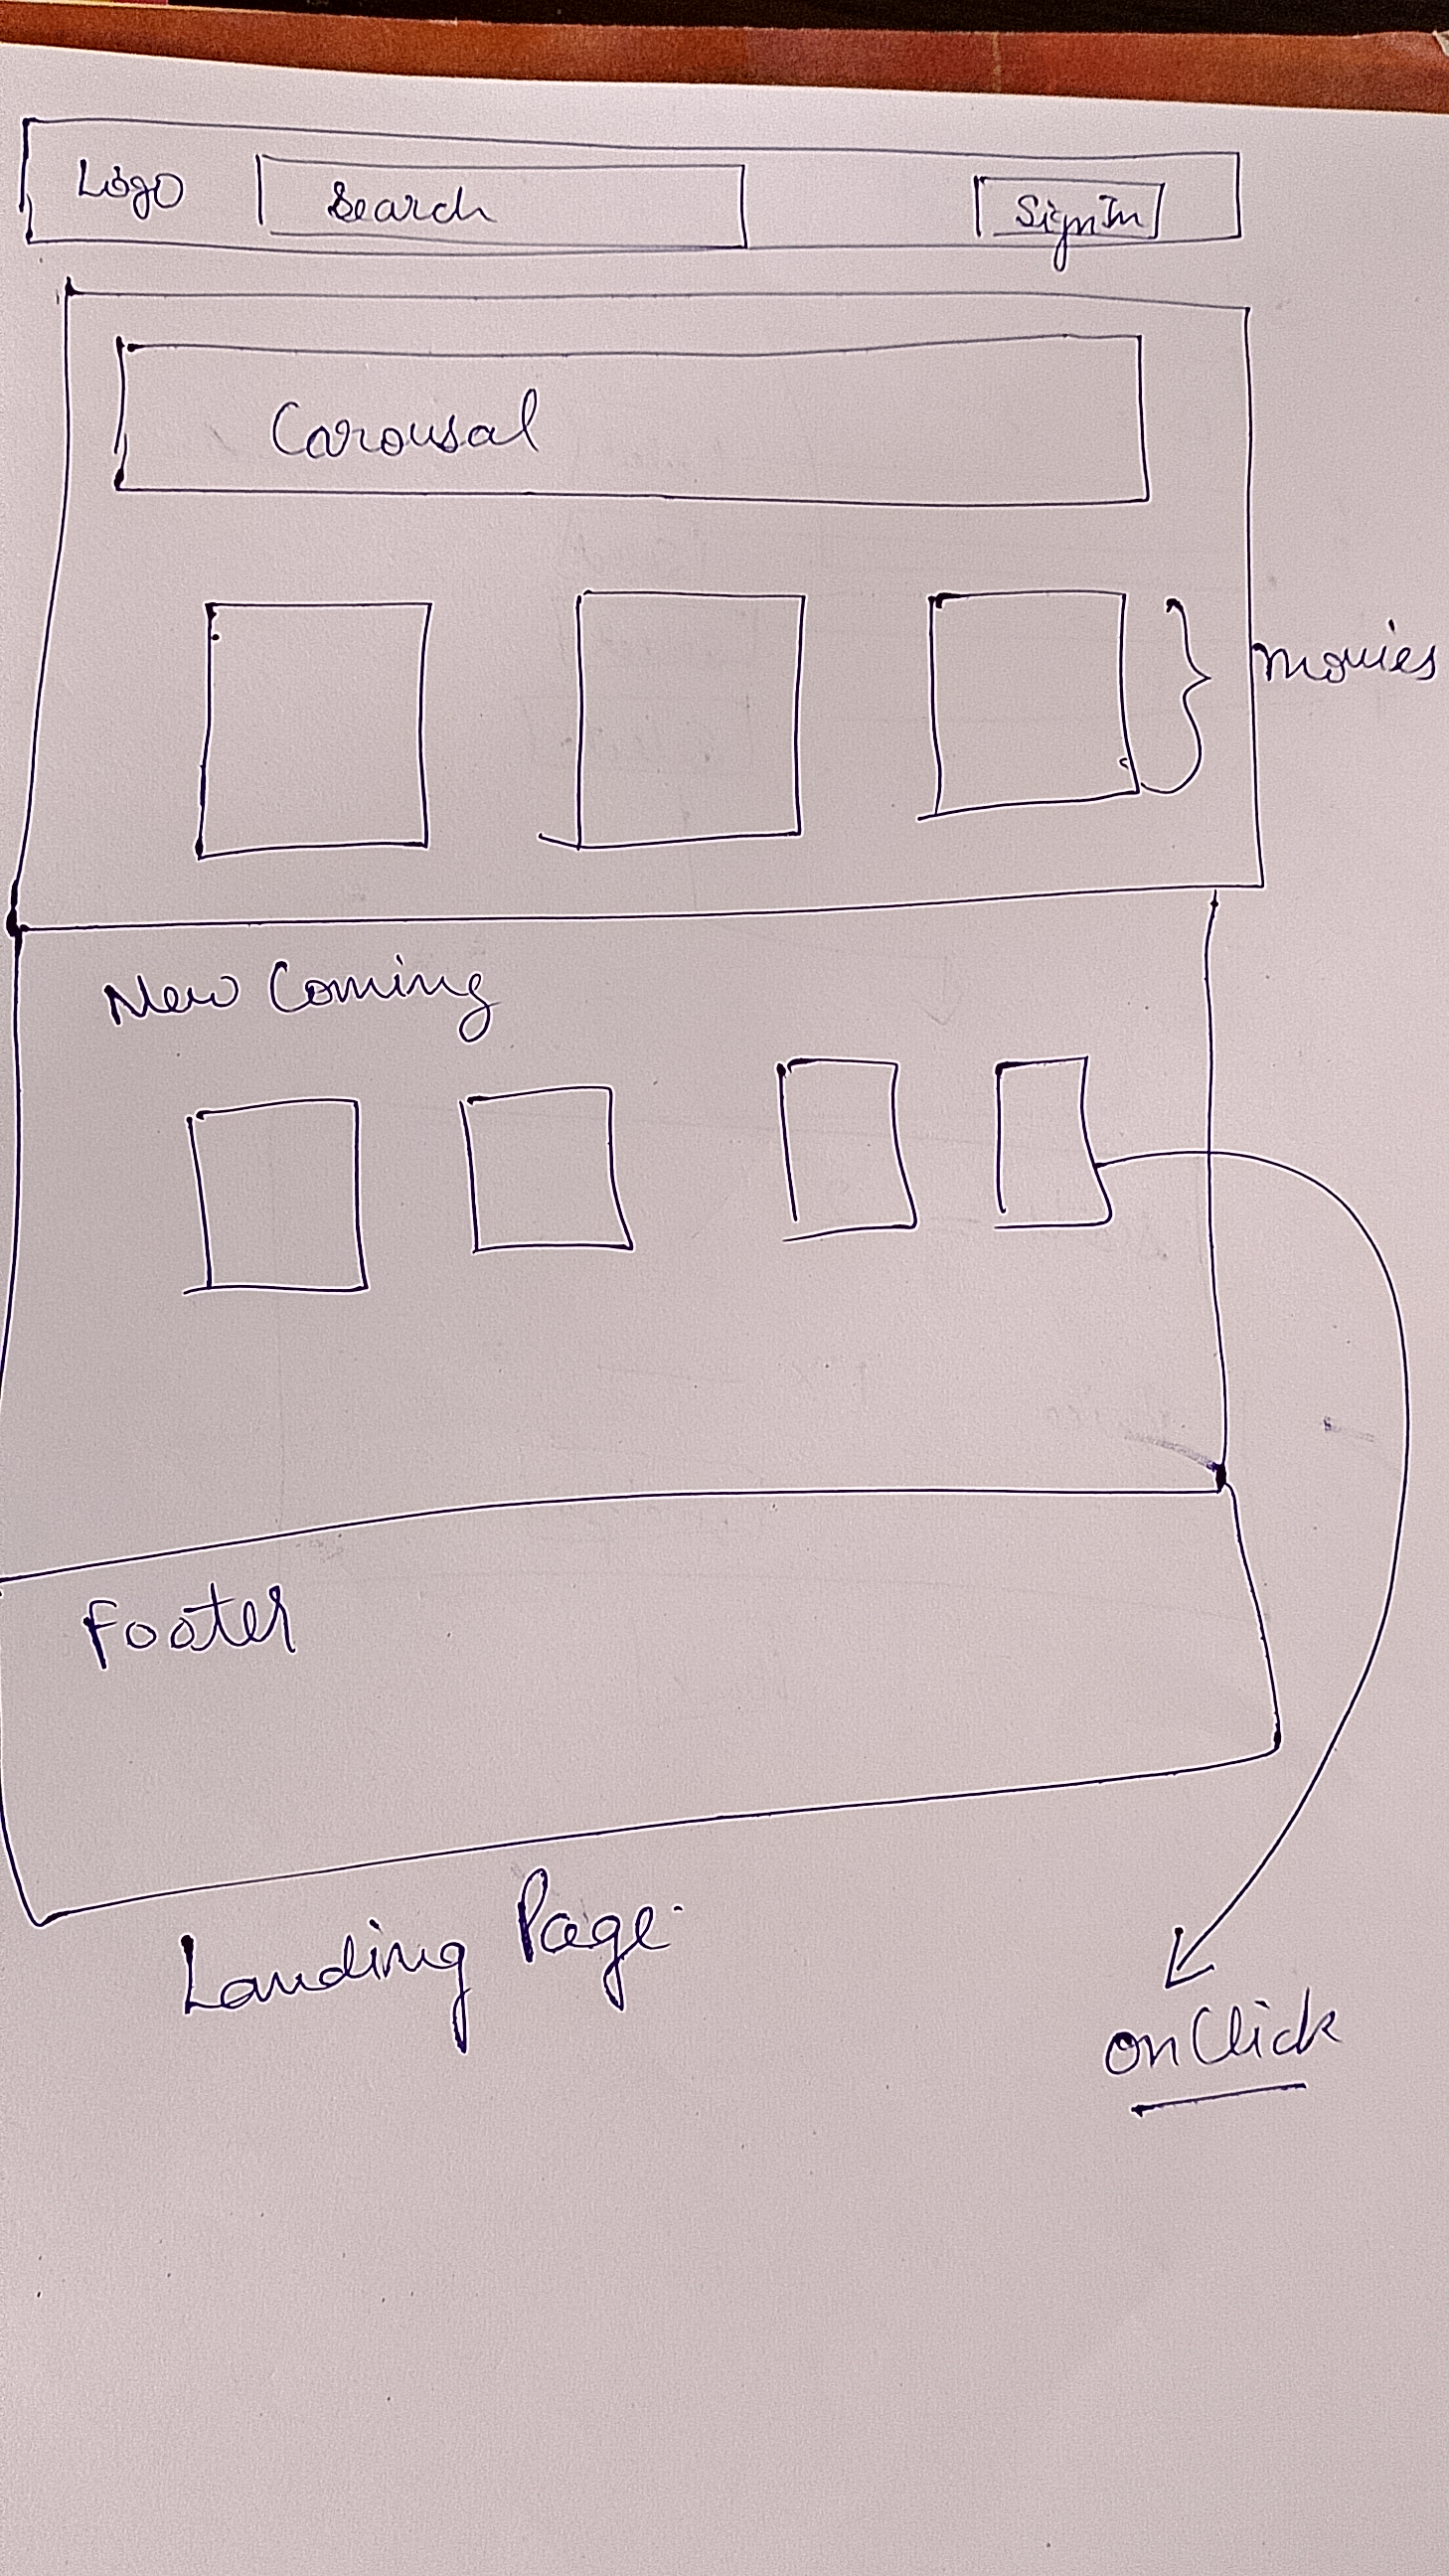 Logo
Search
Sign In
Carousal
Movies
New Coming
Footer
Landing Page
onClick